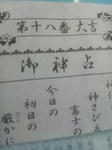 第十八番 大吉
御神占
神さび
富士の
今日の
初日の
厳かに